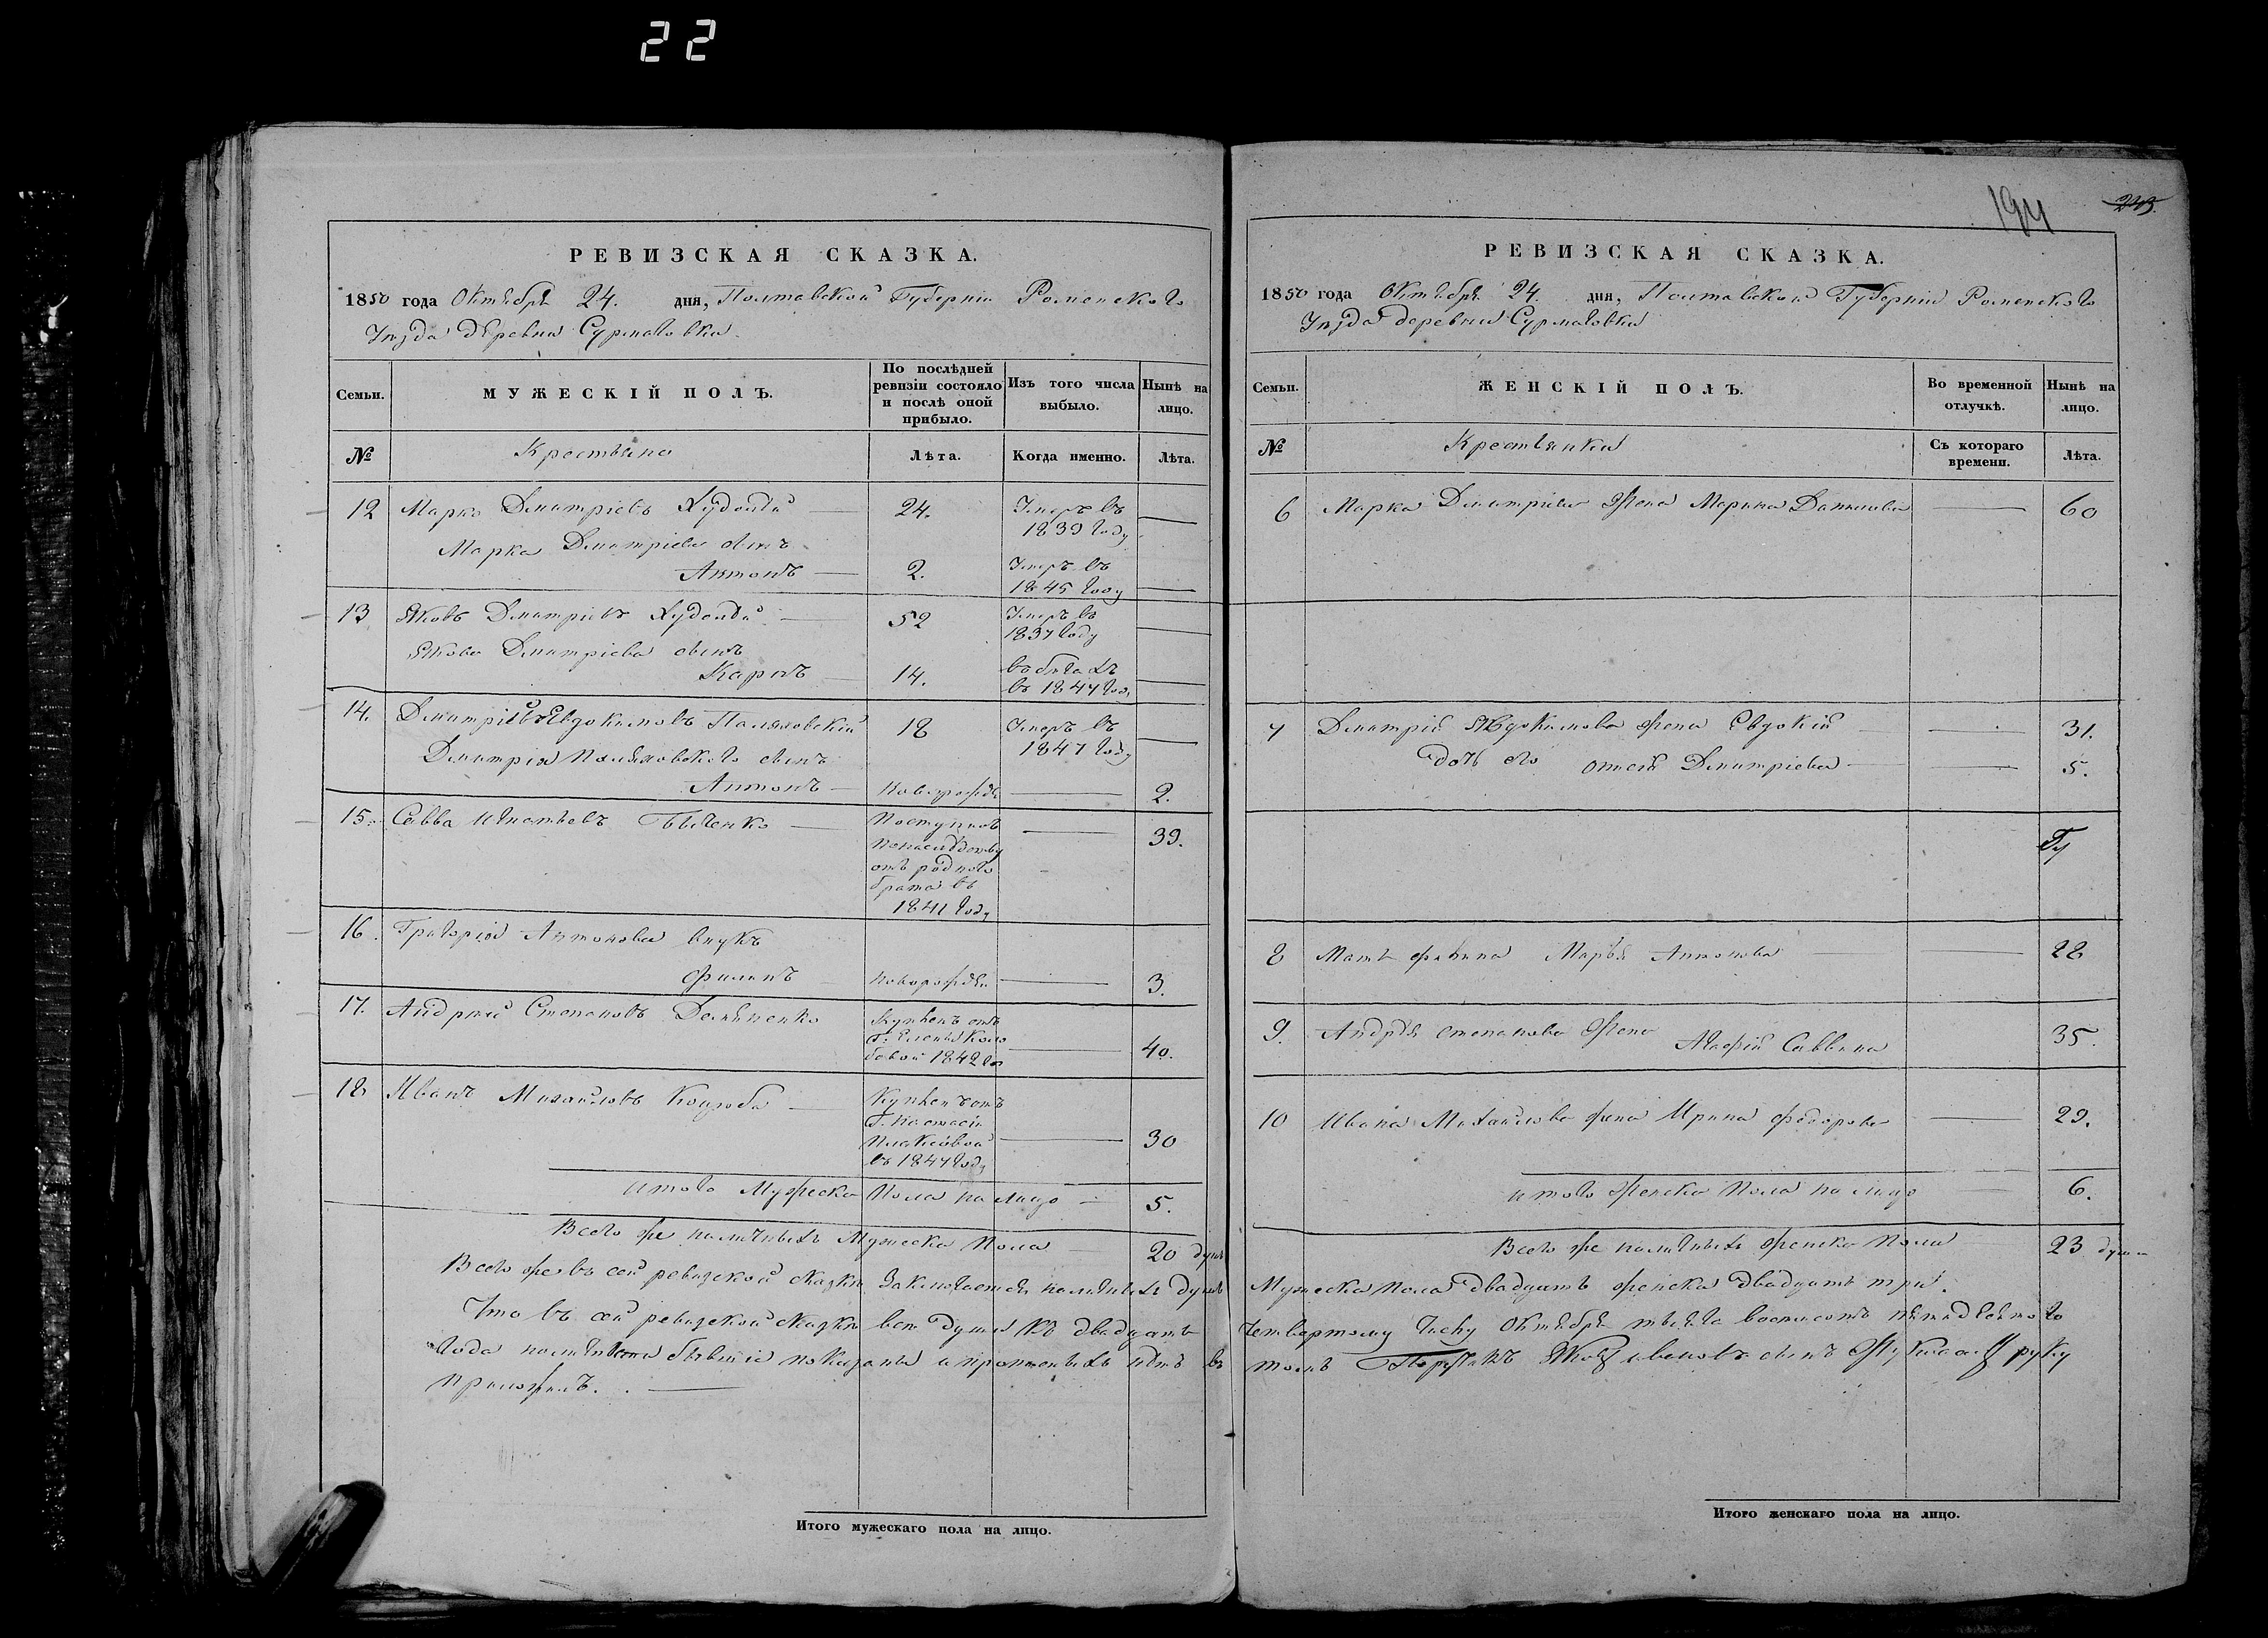 22
194
243.
РЕВИЗСКАЯ СКАЗКА.
1850 года Октября 24. дня, Полтавской Губерніи Роменского
Уезда деревни Сурмаговки
Семьи.
МУЖЕСКІЙ ПОЛЪ.
По послѣдней ревизіи состояло и послѣ оной прибыло.
Изъ того числа выбыло.
Нынѣ на лицо.
№
Крестьяне
Лѣта.
Когда именно.
Лѣта.
12 Марко Дмитріевъ Худолій 24. Умеръ въ 1839 году
Марка Дмитріева сынъ
Антонъ 2. Умеръ въ 1845 году
13 Яковъ Дмитріевъ Худолій 52 Умеръ въ 1837 году
Якова Дмитріева сынъ
Карпъ 14. въ бегахъ въ 1847 год.
14. Дмитрій Евдокимовъ 18 Умеръ въ 1847 году
Дмитрія сынъ
Антонъ новорожд 2.
15. Савва Игнатьевъ Быченко Поступилъ
по наследству
отъ родного
брата въ
1841 году 39.
16. Григорія Антонова внукъ
Филипъ новорожден 3.
17. Андрей Степановъ Демяненко Купленъ отъ
Г. Елены
1842 го 40.
18 Иванъ Михайловъ Коцюба Купленъ отъ
Г. Настасіи
въ 1847 году 30
итого Мужеска Пола на лицо 5.
Всего же наличныхъ Мужеска Пола 20 душъ
РЕВИЗСКАЯ СКАЗКА.
1850 года Октября 24 дня, Полтавской Губерніи Роменского
Уезда деревни Сурмаговки
Семьи.
ЖЕНСКІЙ ПОЛЪ.
Во временной отлучкѣ.
Нынѣ на лицо.
№
Крестьянки
Съ котораго времени.
Лѣта.
6 Марка Дмитріева жена Марина Данилова 60
7 Дмитрія Евдокимова жена Евдокія 31.
дочь его Дмитріева 5.
8 Мать Филипа Марья Антонова 28
9. Андрея Степанова жена
Агафія Саввина 35.
10 Ивана Михайлова жена Ирина Федорова 29.
итого женска Пола на лицо 6.
Всего же наличныхъ женска Пола 23 души
Всего же въ сей ревизской сказки заключается наличныхъ душъ Мужеска Пола двадцать женска двадцать три.
Что въ сей ревизской сказки вси души къ двадцать четвертому числу Октября тысяча восемсотъ пятидесятого
года налицо бывшіе показаны и прописныхъ нетъ въ томъ руку
приложилъ.
Итого мужескаго пола на лицо.
Итого женскаго пола на лицо.